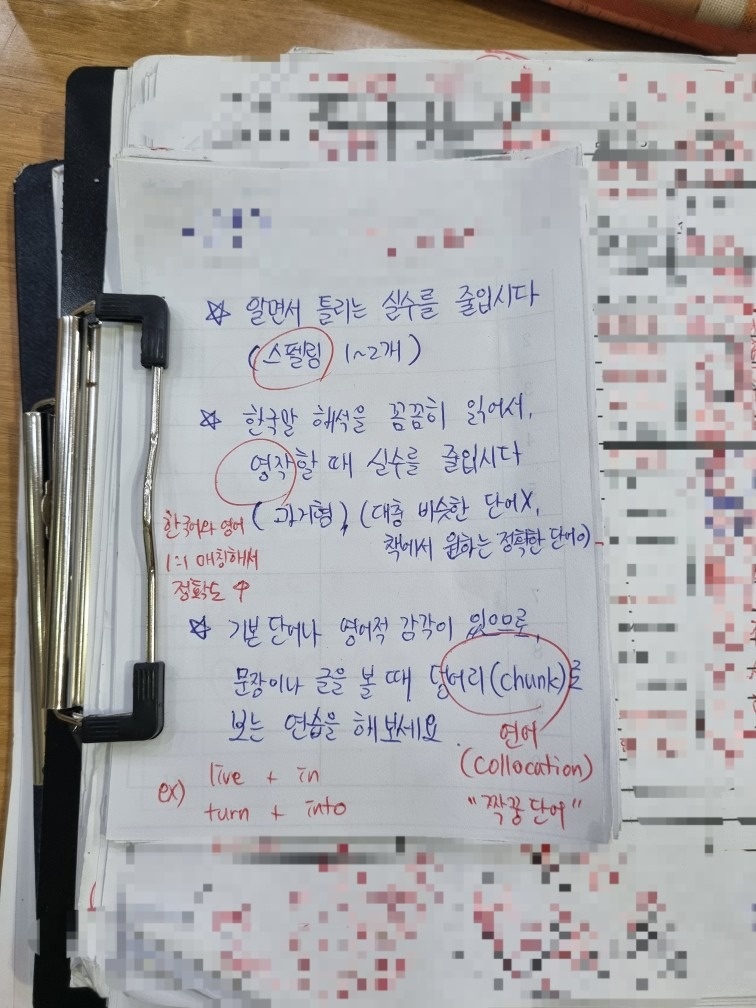 ☆ 알면서 틀리는 실수를 줄입시다
(스펠링 1~2개)
☆ 한국말 해석을 꼼꼼히 읽어서,
영작할 때 실수를 줄입시다
(과거형), (대충 비슷한 단어X,
책에서 원하는 정확한 단어O)
한국어와 영어
1:1 매칭해서
정확도 ↑
☆ 기본 단어나 영어적 감각이 있으므로,
문장이나 글을 볼 때 덩어리(chunk)로
보는 연습을 해보세요
연어
(collocation)
"짝꿍 단어"
ex) live + in
turn + into